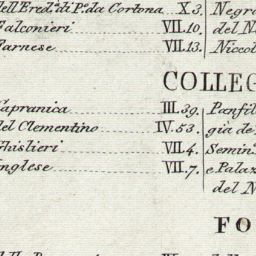 dell'Ered.ᵃ di P.º da Cortona X.3.
Falconieri VII.10.
Farnese VII.13.
Negro
del N.
Niccol
COLLEG
Capranica III.39.
del Clementino IV.53.
Ghislieri VII.4.
Inglese VII.7.
Panfil
gia de
Semin.
e Palaz
del N.
FO